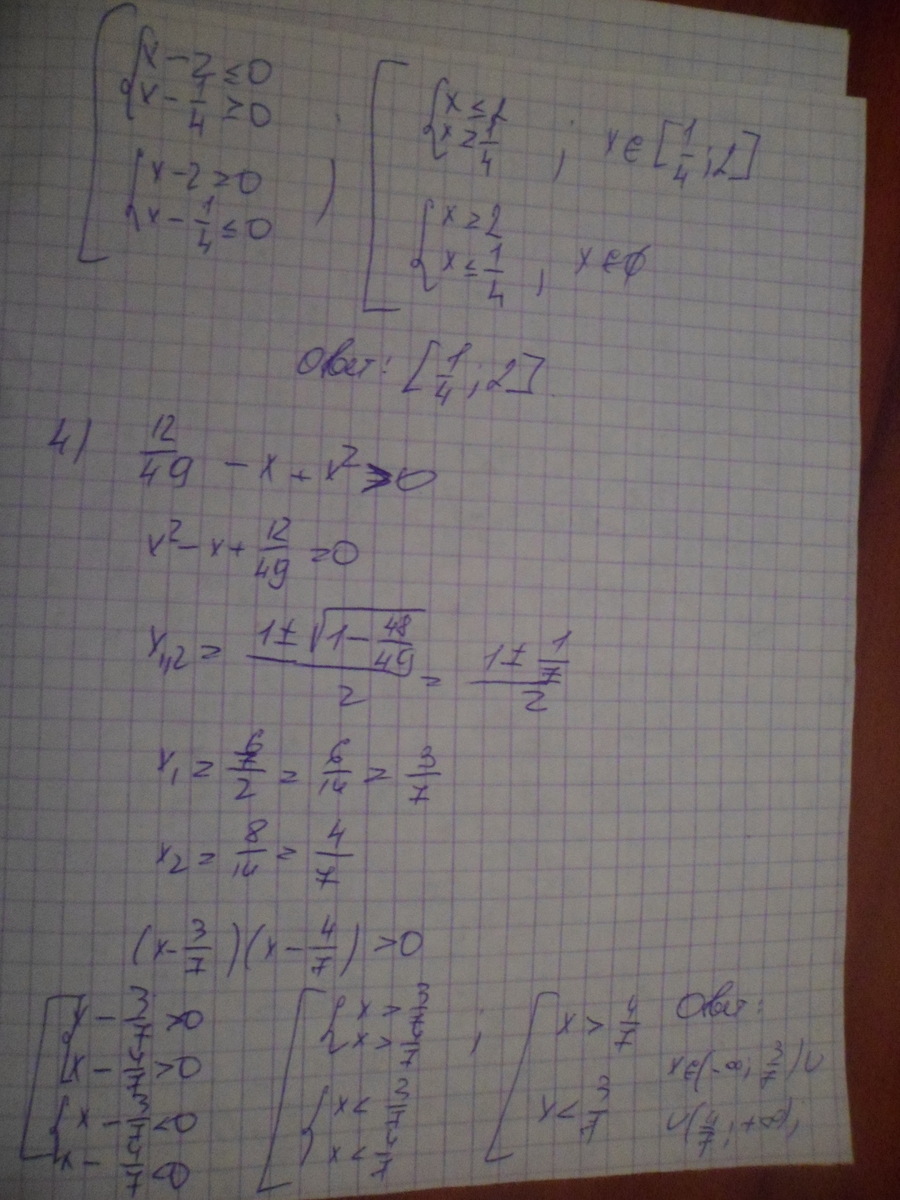 [ { x - 2 ≤ 0 ; x - 1/4 ≥ 0
{ x - 2 ≥ 0 ; x - 1/4 ≤ 0 ;
[ { x ≤ 2 ; x ≥ 1/4 ; x ∈ [1/4 ; 2]
{ x ≥ 2 ; x ≤ 1/4 , x ∈ ∅
Ответ: [1/4 ; 2]
4) 12/49 - x + x² > 0
x² - x + 12/49 = 0
x₁,₂ = (1 ± √(1 - 48/49))/2 = (1 ± 1/7)/2
x₁ = (6/7)/2 = 6/14 = 3/7
x₂ = 8/14 = 4/7
(x - 3/7)(x - 4/7) > 0
[ { x - 3/7 > 0 ; x - 4/7 > 0
{ x - 3/7 < 0 ; x - 4/7 < 0
[ { x > 3/7 ; x > 4/7 ;
{ x < 3/7 ; x < 4/7
[ x > 4/7
x < 3/7
Ответ:
x ∈ (-∞; 3/7) ∪
∪ (4/7 ; +∞).